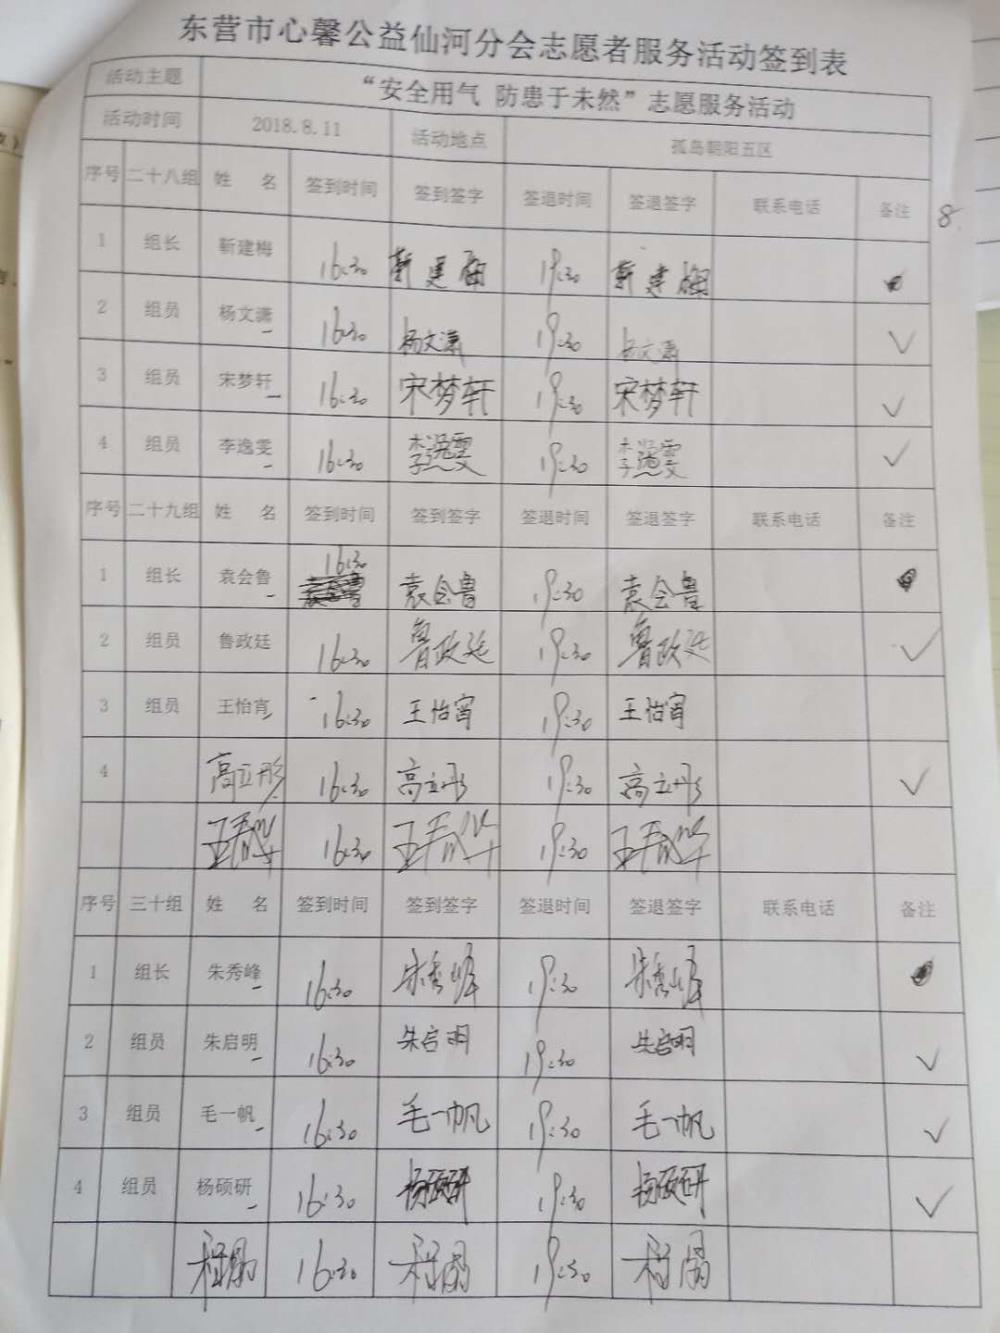 东营市心馨公益仙河分会志愿者服务活动签到表
活动主题 “安全用气 防患于未然”志愿服务活动
活动时间 2018.8.11 活动地点 孤岛朝阳五区
序号 二十八组 姓 名 签到时间 签到签字 签退时间 签退签字 联系电话 备注 8
1 组长 靳建梅 16:30 靳建梅 19:30 靳建梅
2 组员 杨文潇 16:30 杨文潇 19:30 杨文潇 ✓
3 组员 宋梦轩 16:30 宋梦轩 19:30 宋梦轩 ✓
4 组员 李逸雯 16:30 李逸雯 19:30 李逸雯 ✓
序号 二十九组 姓 名 签到时间 签到签字 签退时间 签退签字 联系电话 备注
1 组长 袁会鲁 16:30 袁会鲁 19:30 袁会鲁
2 组员 鲁政廷 16:30 鲁政廷 19:30 鲁政廷 ✓
3 组员 王怡宵 16:30 王怡宵 19:30 王怡宵
4 高立彤 16:30 高立彤 19:30 高立彤 ✓
16:30 19:30
序号 三十组 姓 名 签到时间 签到签字 签退时间 签退签字 联系电话 备注
1 组长 朱秀峰 16:30 朱秀峰 19:30 朱秀峰
2 组员 朱启明 16:30 朱启明 19:30 朱启明 ✓
3 组员 毛一帆 16:30 毛一帆 19:30 毛一帆 ✓
4 组员 杨硕研 16:30 杨硕研 19:30 杨硕研 ✓
16:30 19:30